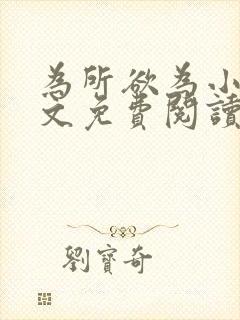 為所欲為小
文免費閱讀
劉寶奇